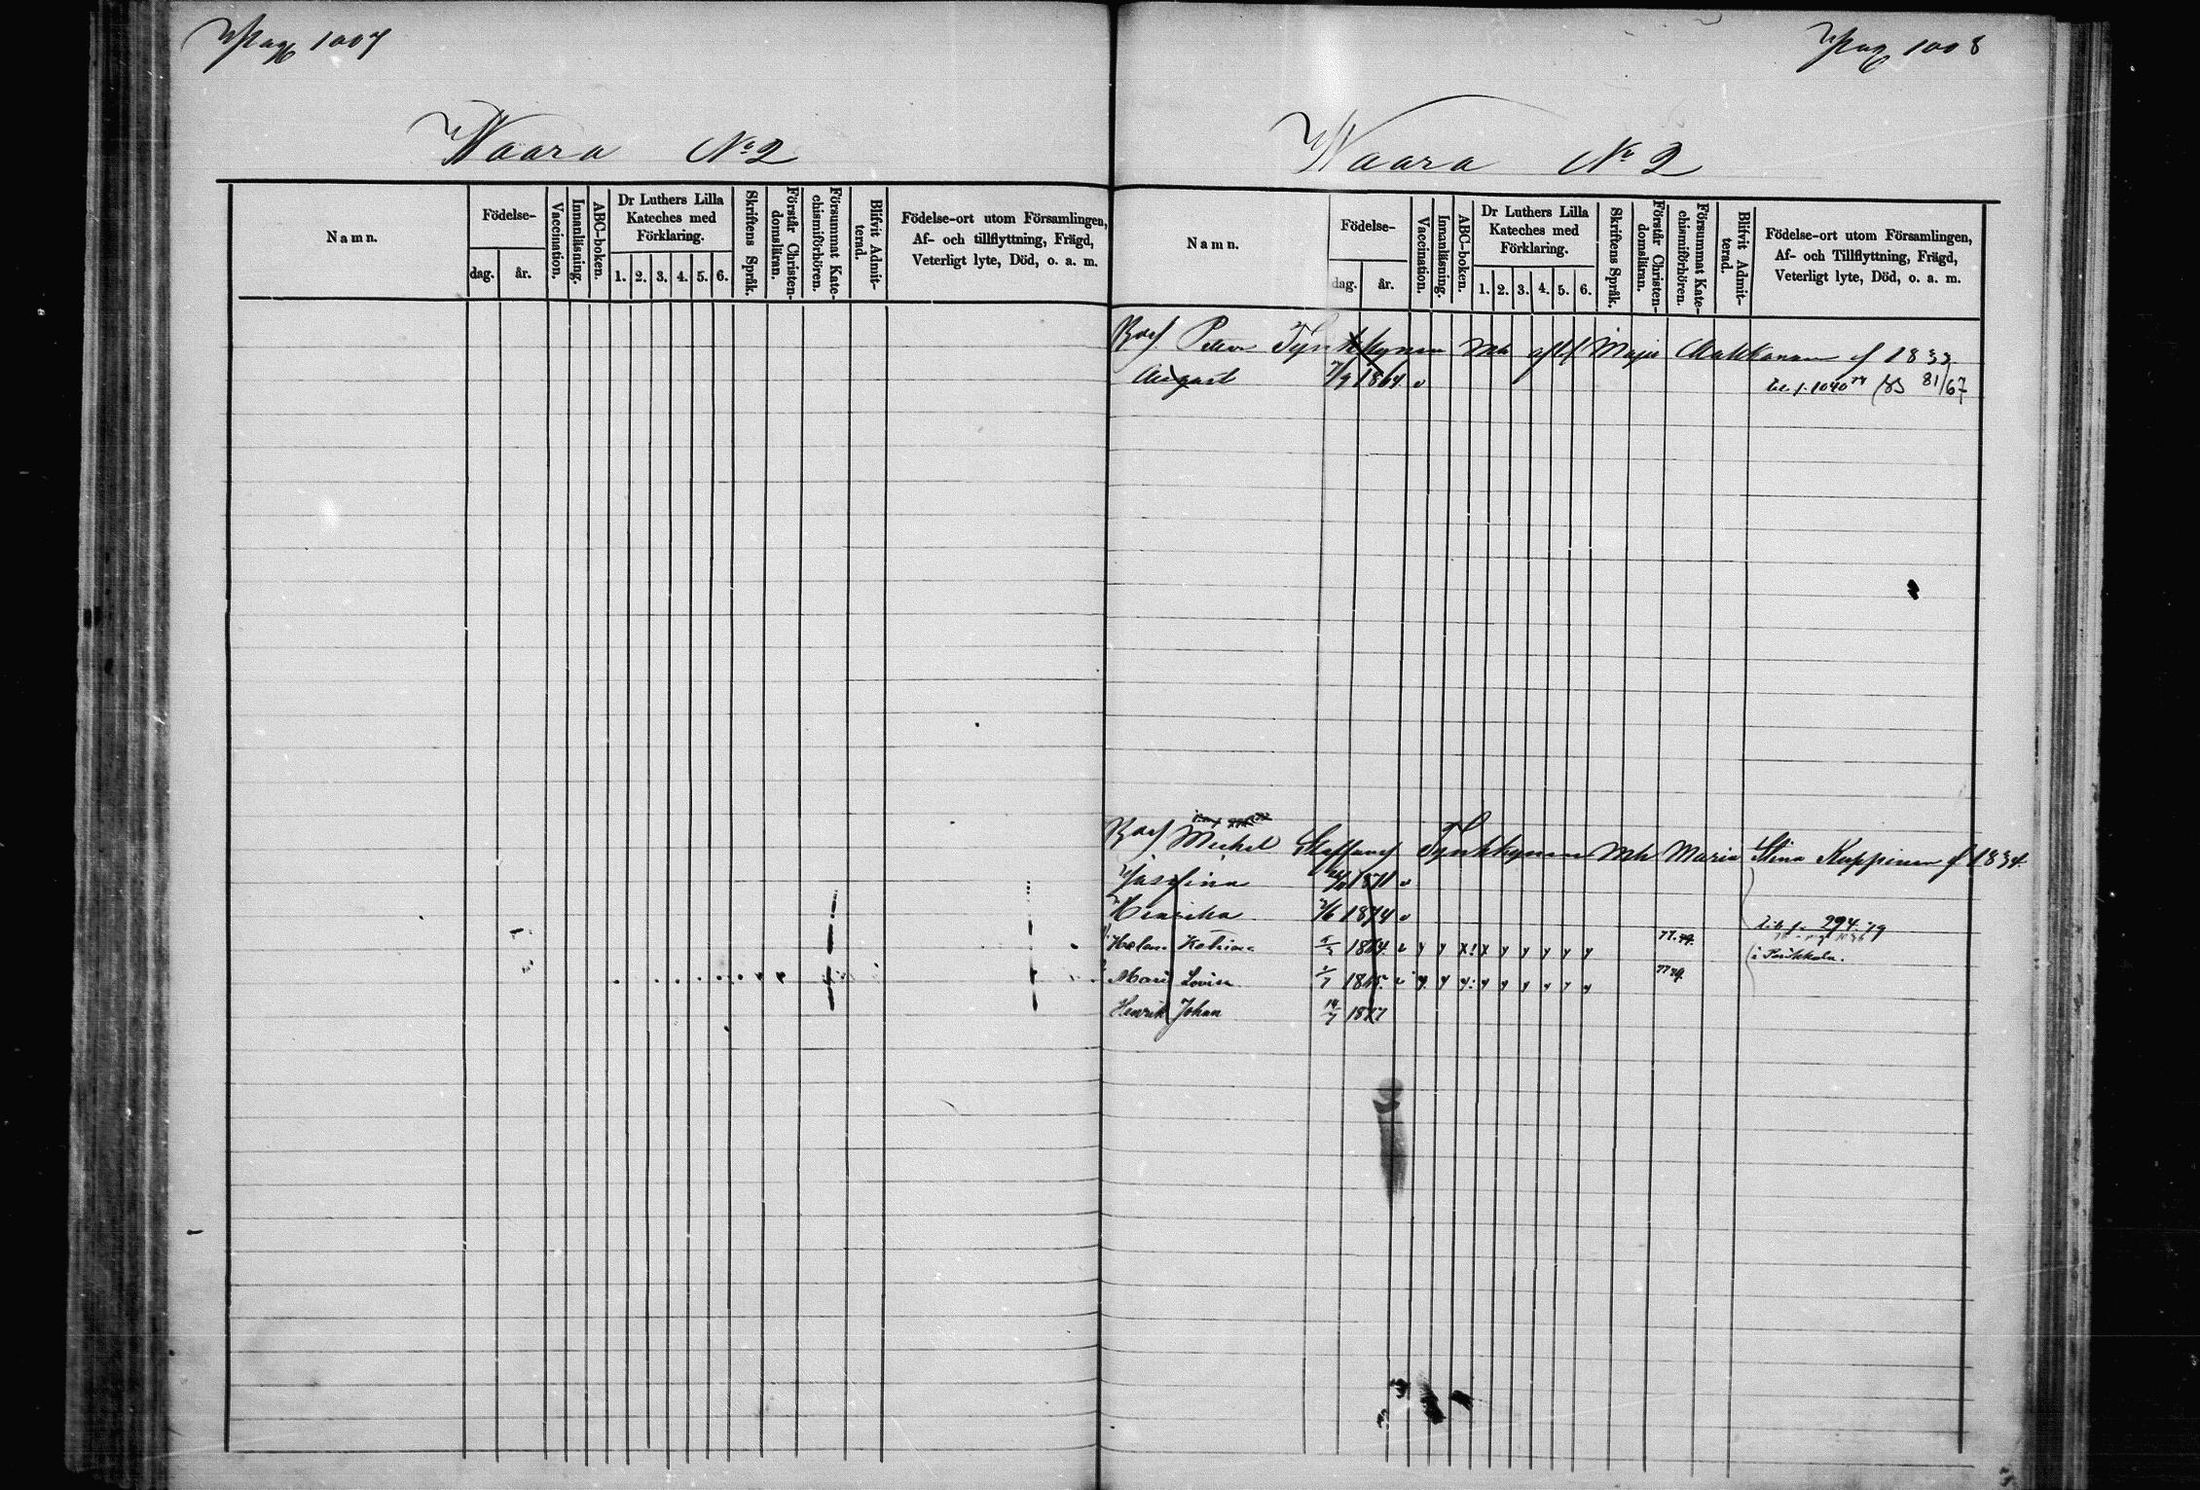 Pag 1007
Waara No 2
Namn.
Födelse-
dag.
år.
Vaccination.
Innanläsning.
ABC-boken.
Dr Luthers Lilla
Kateches med
Förklaring.
1. 2. 3. 4. 5. 6.
Skriftens Språk.
Förstår Christen-
domsläran.
Försummat Kate-
chismiförhören.
Blifvit Admit-
terad.
Födelse-ort utom Församlingen,
Af- och tillflyttning, Frägd,
Veterligt lyte, Död, o. a. m.
Pag 1008
Waara No 2
Namn.
Födelse-
dag.
år.
Vaccination.
Innanläsning.
ABC-boken.
Dr Luthers Lilla
Kateches med
Förklaring.
1. 2. 3. 4. 5. 6.
Skriftens Språk.
Förstår Christen-
domsläran.
Försummat Kate-
chismiförhören.
Blifvit Admit-
terad.
Födelse-ort utom Församlingen,
Af- och Tillflyttning, Frägd,
Veterligt lyte, Död, o. a. m.
Petter Tynkkynen Mh Maja f 1832
August 1864 v 81/67
Michel Staffansf Tynkkynen Mh Maria Stina Kuppinen f 1834
Josefina 1871 v
Henrika 1874 v
Helena Katrina 1864 v 77.79.
294.79
Maria Lovisa 1865 v 77 79.
i Parikkala.
Henrik Johan 14/7 1877